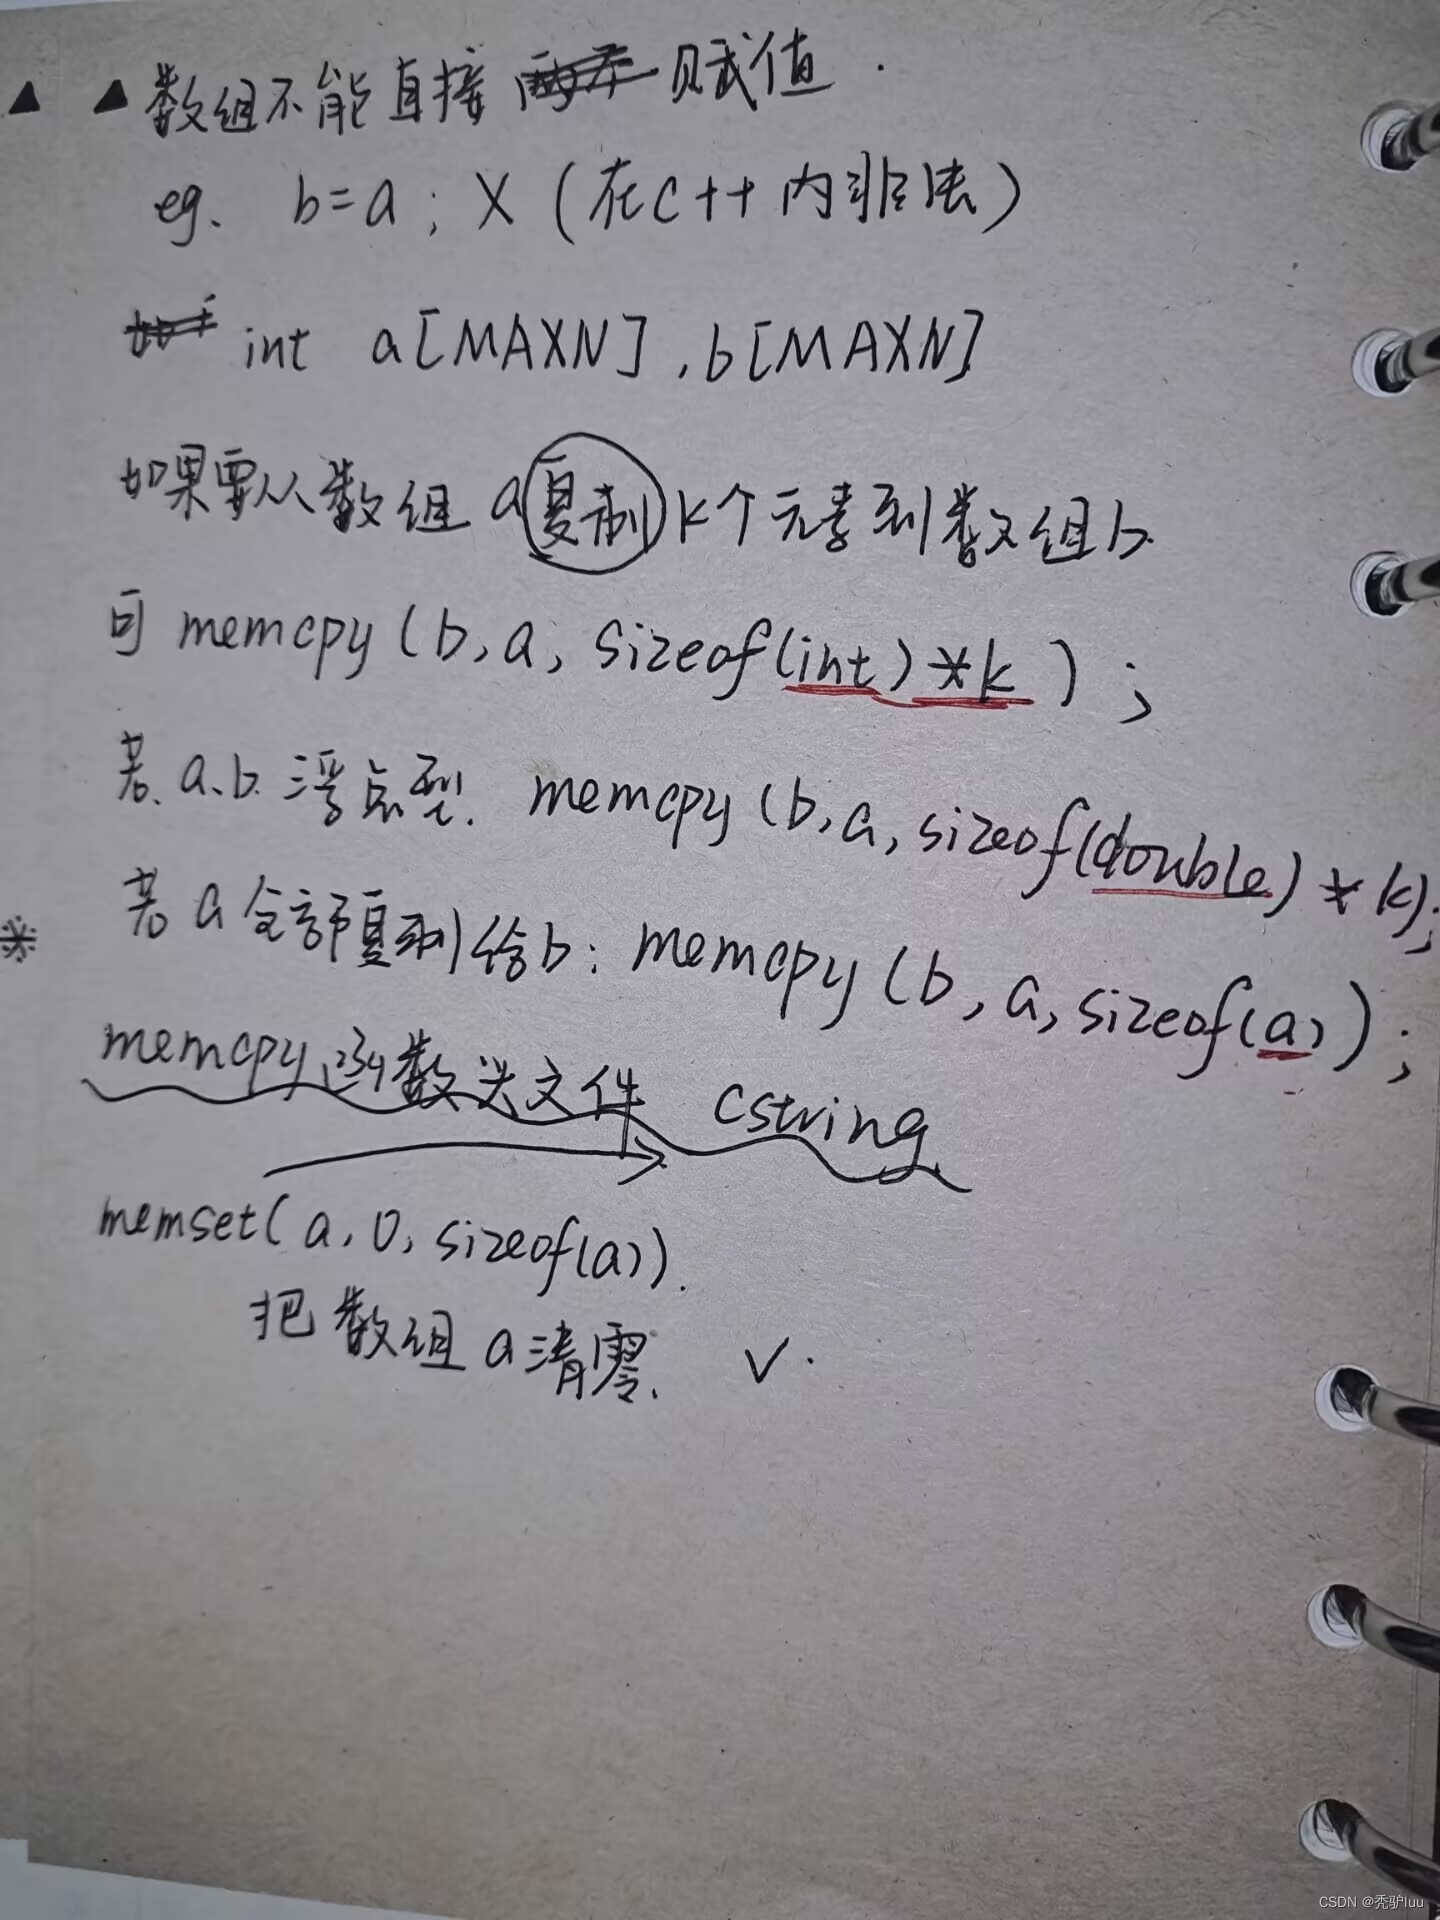 ▲ ▲数组不能直接 赋值.
eg. b=a; X (在C++内非法)
int a[MAXN],b[MAXN]
如果要从数组a复制k个元素到数组b.
可 memcpy(b,a,sizeof(int)*k);
若a.b.浮点型. memcpy(b,a,sizeof(double)*k);
※ 若a全部复制给b: memcpy(b,a,sizeof(a));
memcpy函数头文件 cstring
memset(a,0,sizeof(a)).
把数组a清零. ✓.
CSDN @秃驴luu